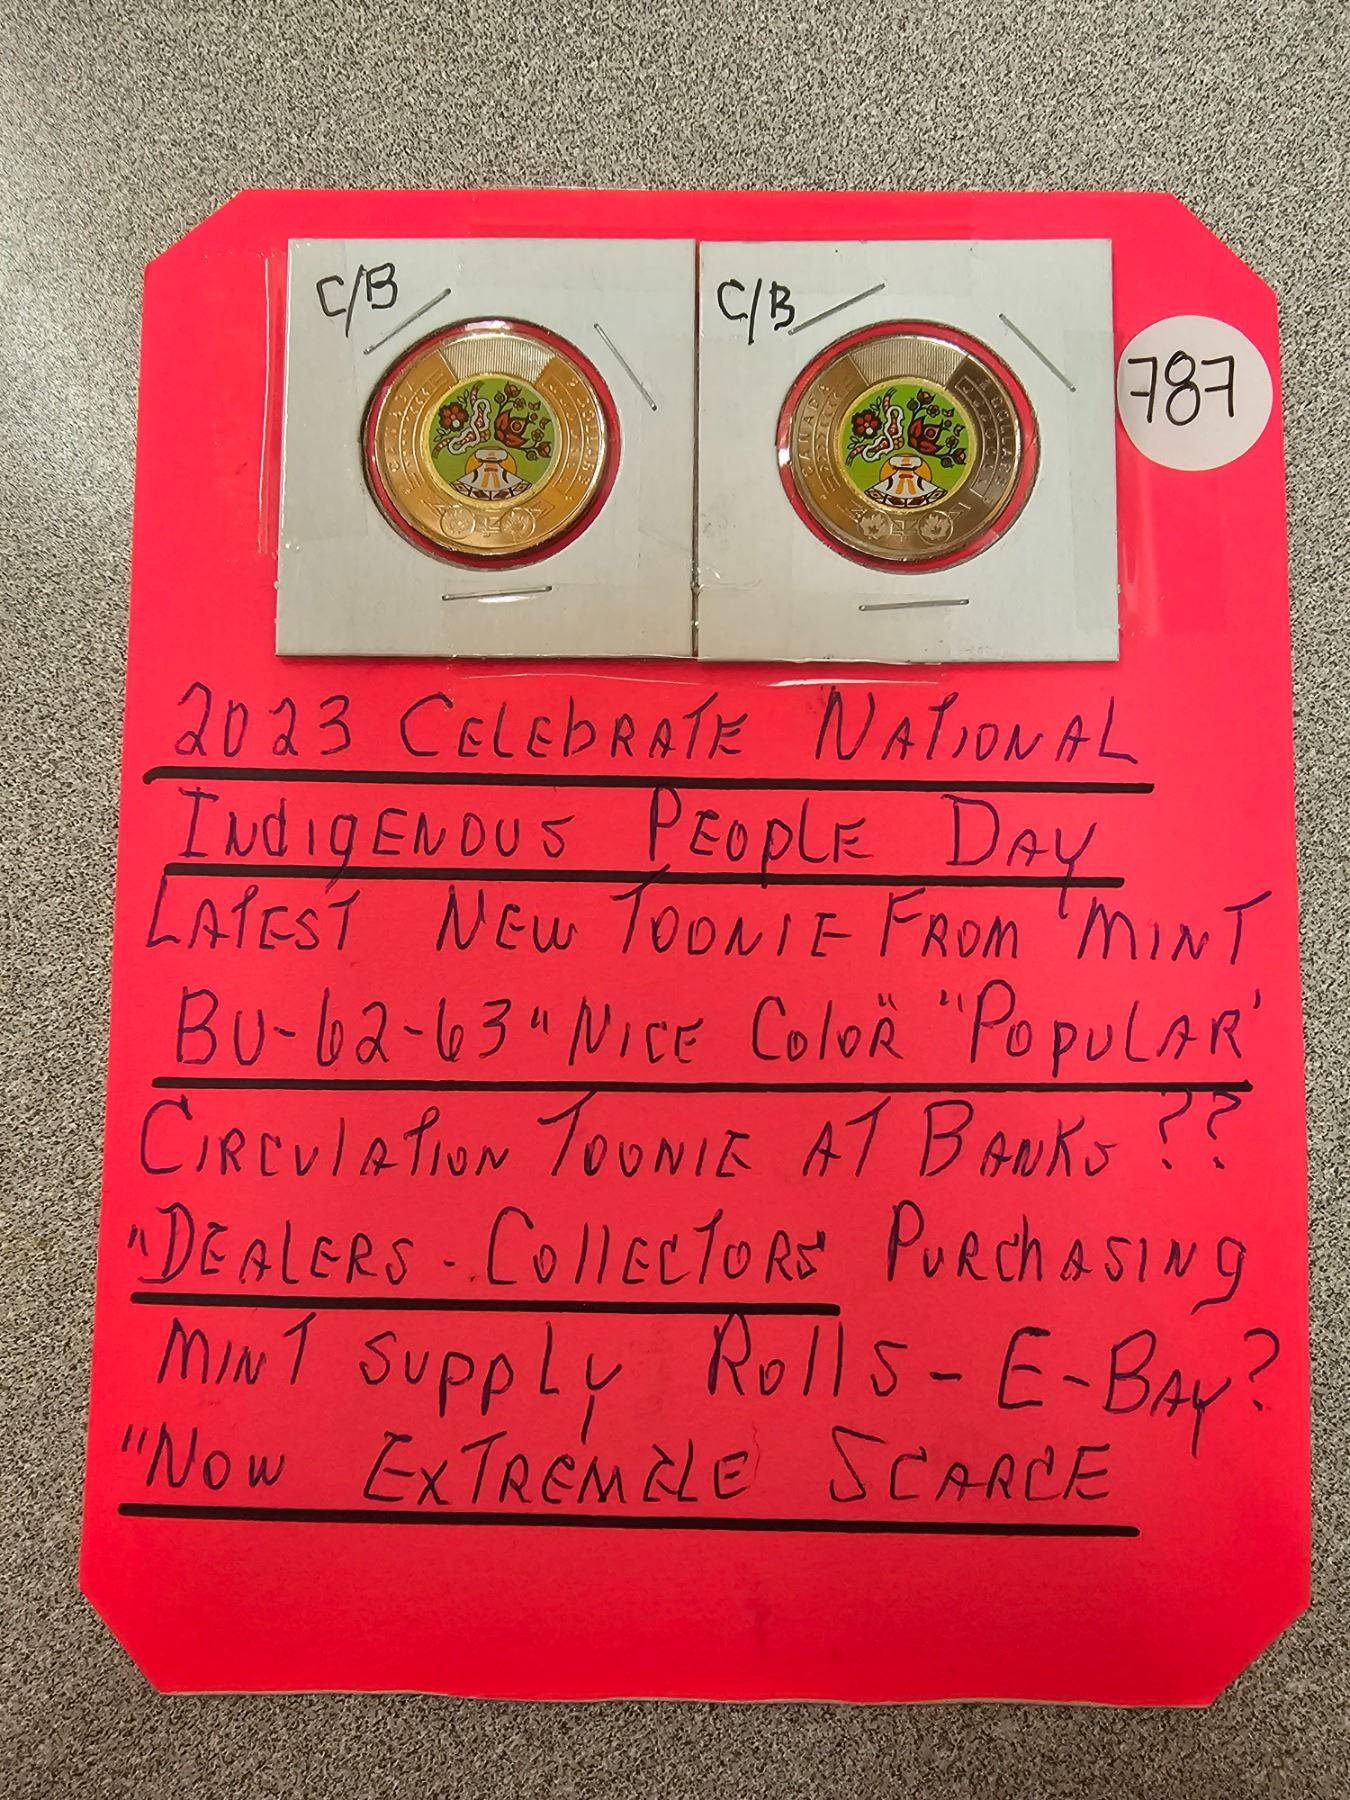 C/B
C/B
787
CANADA
2 DOLLARS
2023 CELEbRATE NATIONAL
INdIgENOUS PEOPLE DAY
LATEST NEW TOONIE FROM MINT
BU-62-63 "NICE COlOR" "POPULAR'
CIRCULATION TOONIE AT BANKS??
"DEALERS - COllECTORS PURChASINg
MINT SUPPLY ROllS - E-BAY?
"NOW EXTREMELE SCARCE